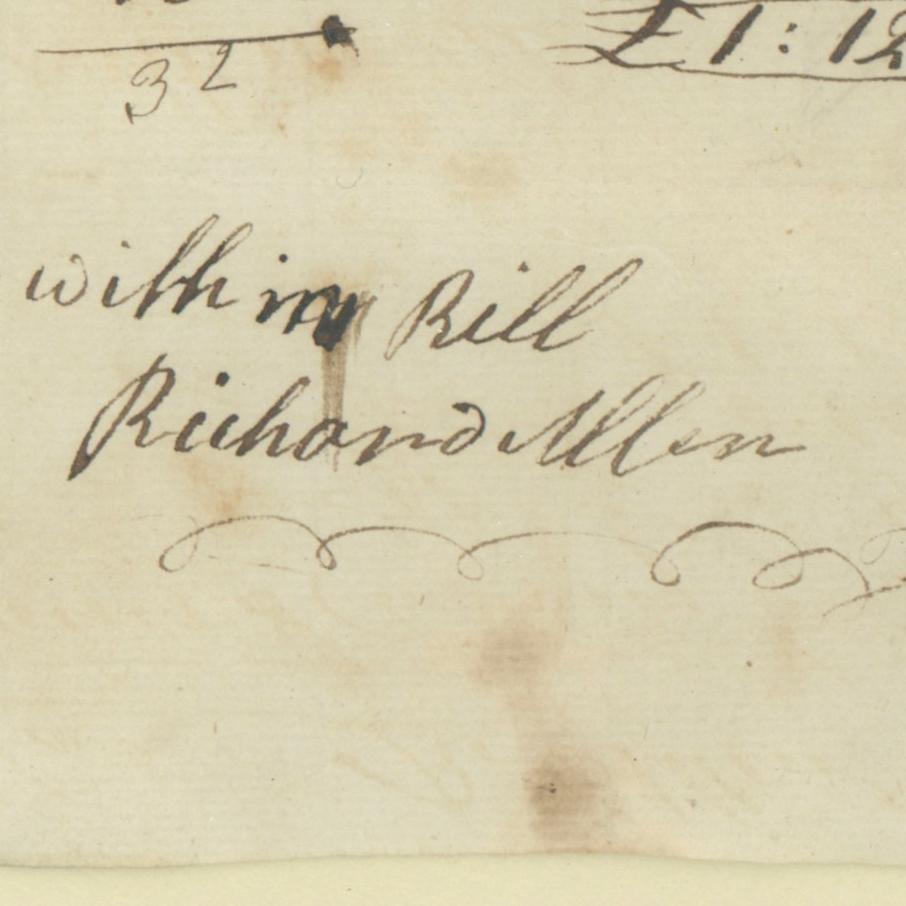 £1: 12
32
within Bill
Richard Allen